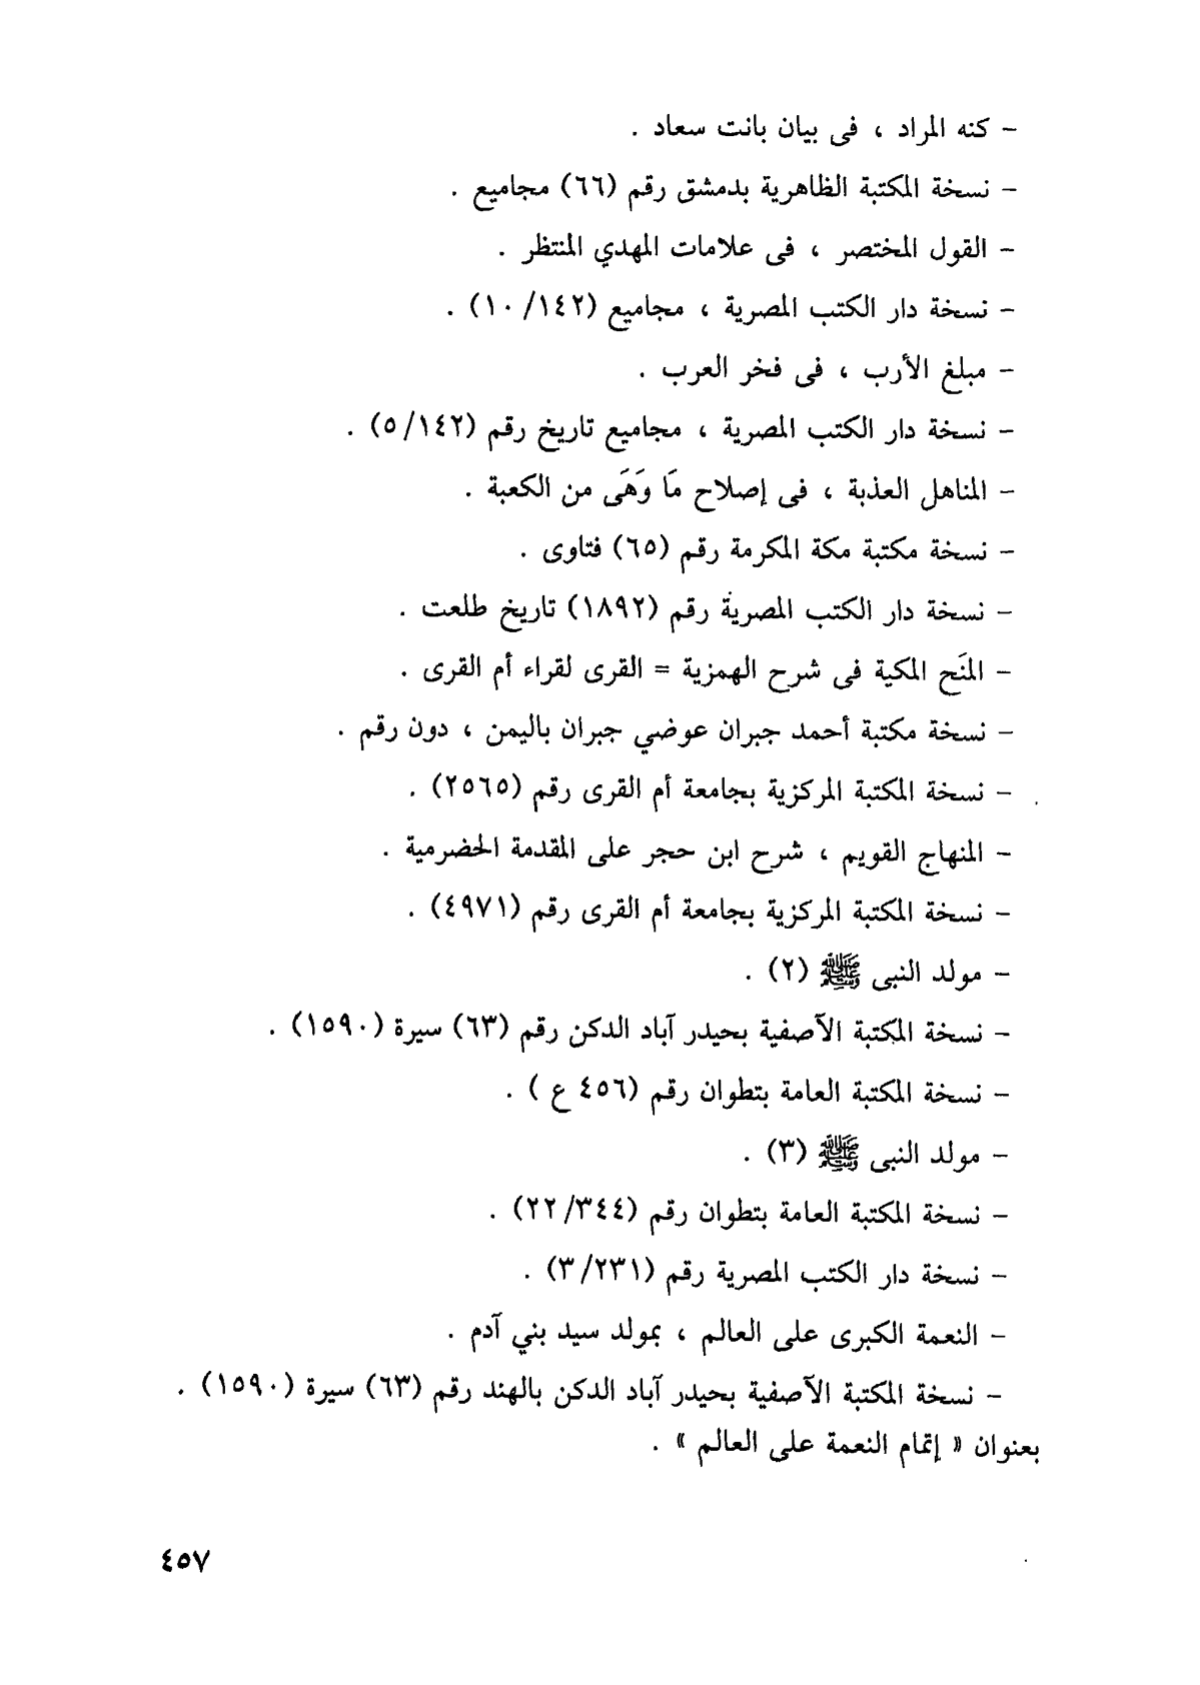 – كنه المراد ، فى بيان بانت سعاد .
– نسخة المكتبة الظاهرية بدمشق رقم (٦٦) مجاميع .
– القول المختصر ، فى علامات المهدي المنتظر .
– نسخة دار الكتب المصرية ، مجاميع (١٠/١٤٢) .
– مبلغ الأرب ، فى فخر العرب .
– نسخة دار الكتب المصرية ، مجاميع تاريخ رقم (٥/١٤٢) .
– المناهل العذبة ، فى إصلاح مَا وَهَى من الكعبة .
– نسخة مكتبة مكة المكرمة رقم (٦٥) فتاوى .
– نسخة دار الكتب المصرية رقم (١٨٩٢) تاريخ طلعت .
– المنَح المكية فى شرح الهمزية = القرى لقراء أم القرى .
– نسخة مكتبة أحمد جبران عوضي جبران باليمن ، دون رقم .
– نسخة المكتبة المركزية بجامعة أم القرى رقم (٢٥٦٥) .
– المنهاج القويم ، شرح ابن حجر على المقدمة الحضرمية .
– نسخة المكتبة المركزية بجامعة أم القرى رقم (٤٩٧١) .
– مولد النبى ﷺ (٢) .
– نسخة المكتبة الآصفية بحيدر آباد الدكن رقم (٦٣) سيرة (١٥٩٠) .
– نسخة المكتبة العامة بتطوان رقم (٤٥٦ ع ) .
– مولد النبى ﷺ (٣) .
– نسخة المكتبة العامة بتطوان رقم (٢٢/٣٤٤) .
– نسخة دار الكتب المصرية رقم (٣/٢٣١) .
– النعمة الكبرى على العالم ، بمولد سيد بني آدم .
– نسخة المكتبة الآصفية بحيدر آباد الدكن بالهند رقم (٦٣) سيرة (١٥٩٠) .
بعنوان « إتمام النعمة على العالم » .
٤٥٧